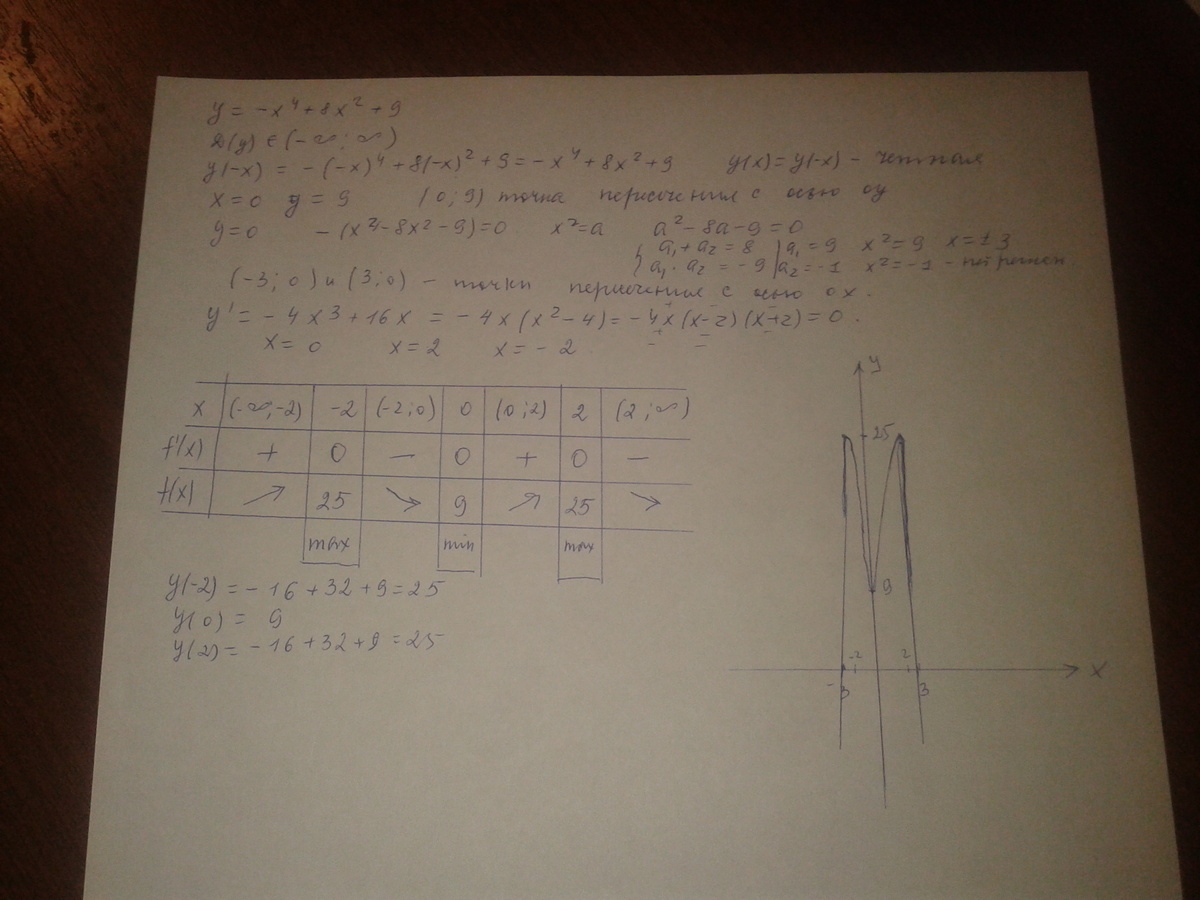 y = -x⁴ + 8x² + 9
D(y) ∈ (-∞; ∞)
y(-x) = -(-x)⁴ + 8(-x)² + 9 = -x⁴ + 8x² + 9 y(x) = y(-x) - четная
x = 0 y = 9 (0; 9) точка пересечения с осью оу
y = 0 -(x⁴ - 8x² - 9) = 0 x² = a a² - 8a - 9 = 0
{ a₁ + a₂ = 8 | a₁ = 9 x² = 9 x = ±3
a₁ · a₂ = -9 | a₂ = -1 x² = -1 - нет решен.
(-3; 0) и (3; 0) - точки пересечения с осью ох.
y' = -4x³ + 16x = -4x(x² - 4) = -4x(x-2)(x+2) = 0.
x = 0 x = 2 x = -2
x (-∞; -2) -2 (-2; 0) 0 (0; 2) 2 (2; ∞)
f'(x) + 0 - 0 + 0 -
f(x) ↗ 25 ↘ 9 ↗ 25 ↘
max min max
y(-2) = -16 + 32 + 9 = 25
y(0) = 9
y(2) = -16 + 32 + 9 = 25
y
25
9
-2 2
x
-3 3